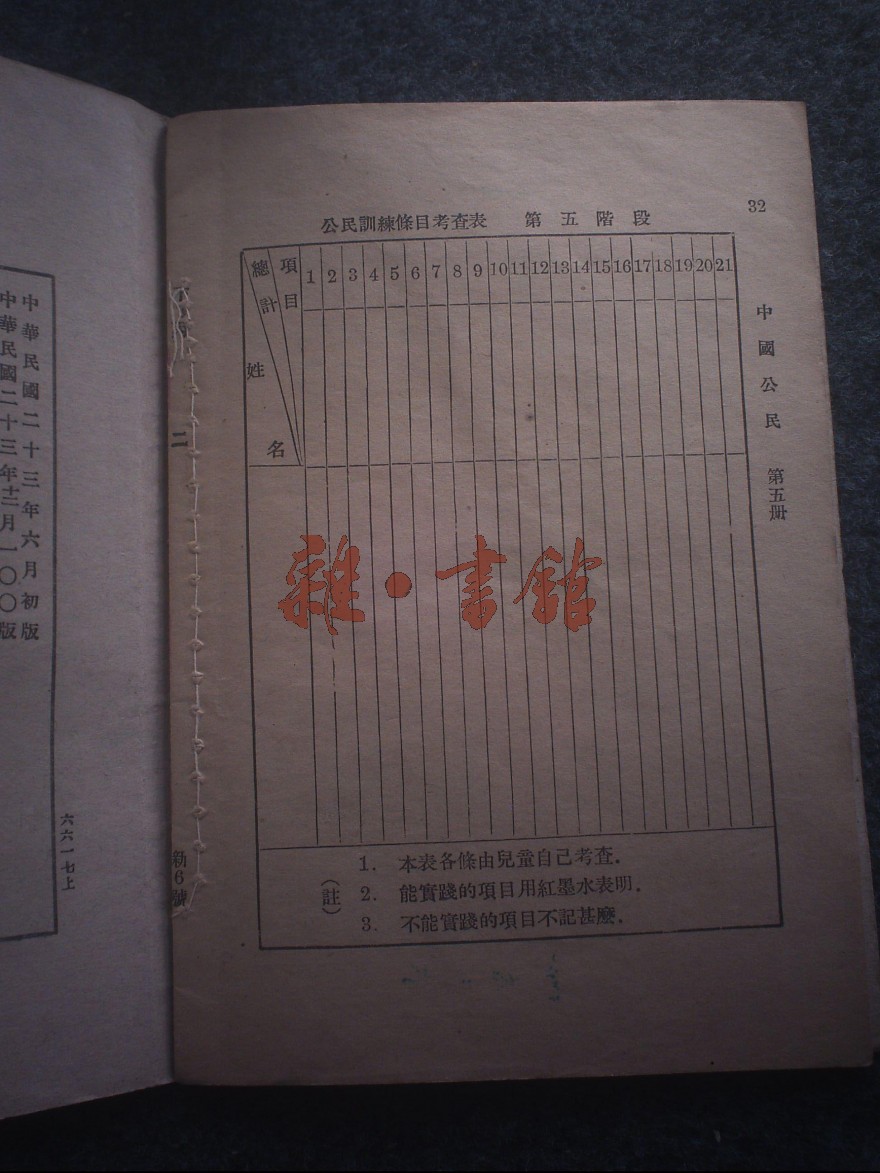 32
公民訓練條目考查表 第五階段
總計 項目 1 2 3 4 5 6 7 8 9 10 11 12 13 14 15 16 17 18 19 20 21
姓名
(註)
1. 本表各條由兒童自己考查.
2. 能實踐的項目用紅墨水表明.
3. 不能實踐的項目不記甚麼.
中國公民 第五册
雜·書館
二
6號
中華民國二十三年六月初版
中華民國二十三年十二月一〇〇版
六六一七上